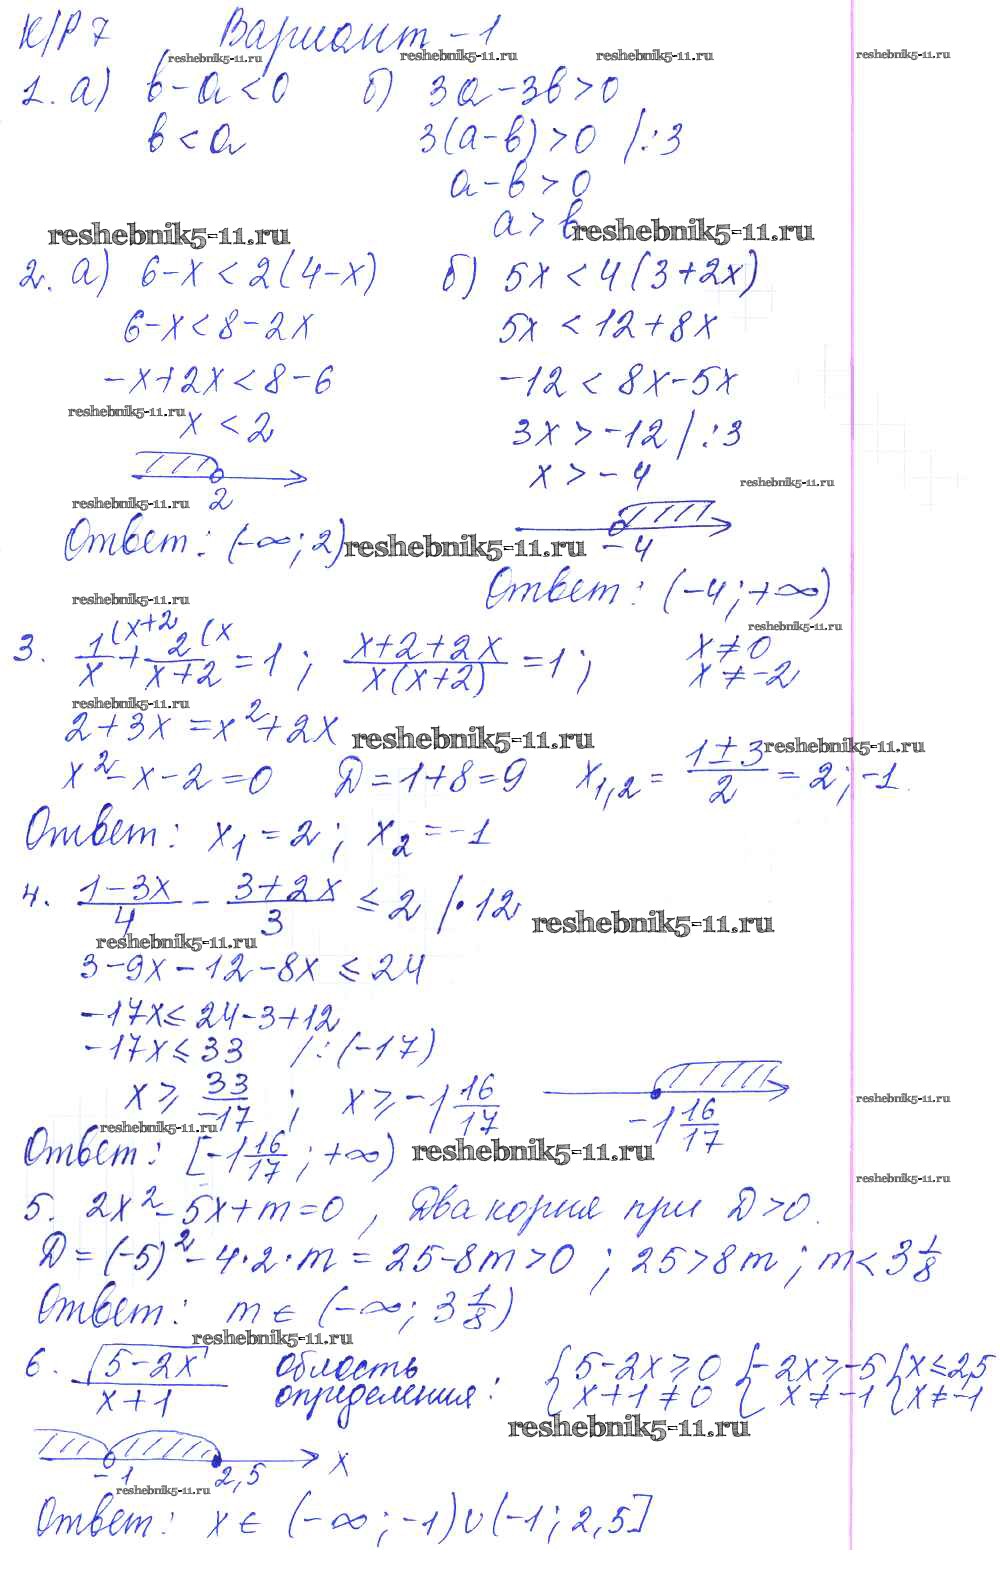 К/Р 7 Вариант - 1
reshebnik5-11.ru reshebnik5-11.ru reshebnik5-11.ru reshebnik5-11.ru
1. а) в - а < 0 б) 3а - 3в > 0
в < а 3(а - в) > 0 /:3
а - в > 0
а > в
reshebnik5-11.ru reshebnik5-11.ru
2. а) 6-x < 2(4-x) б) 5x < 4(3+2x)
6-x < 8-2x 5x < 12+8x
-x+2x < 8-6 -12 < 8x-5x
reshebnik5-11.ru
x < 2 3x > -12 /:3
x > -4
reshebnik5-11.ru
2
reshebnik5-11.ru
-4
Ответ: (-∞; 2) reshebnik5-11.ru
Ответ: (-4; +∞)
reshebnik5-11.ru
reshebnik5-11.ru
3. 1/x (x+2 + 2/(x+2) (x = 1; (x+2+2x)/(x(x+2)) = 1; x ≠ 0
x ≠ -2
reshebnik5-11.ru
2+3x = x²+2x reshebnik5-11.ru reshebnik5-11.ru
x²-x-2=0 Д=1+8=9 x1,2 = (1±3)/2 = 2; -1.
Ответ: x1 = 2; x2 = -1
4. (1-3x)/4 - (3+2x)/3 ≤ 2 /·12 reshebnik5-11.ru
reshebnik5-11.ru
3-9x-12-8x ≤ 24
-17x ≤ 24-3+12
-17x ≤ 33 /:(-17)
x ≥ 33/-17; x ≥ -1 16/17 -1 16/17
reshebnik5-11.ru
reshebnik5-11.ru
Ответ: [-1 16/17; +∞) reshebnik5-11.ru
reshebnik5-11.ru
5. 2x²-5x+m=0, Два корня при Д>0.
Д=(-5)²-4·2·m=25-8m>0; 25>8m; m<3 1/8
Ответ: m∈(-∞; 3 1/8)
reshebnik5-11.ru
6. √(5-2x)/(x+1) область {5-2x≥0 {-2x≥-5 {x≤2,5
определения: x+1≠0 x≠-1 x≠-1
reshebnik5-11.ru
-1 2,5 x
reshebnik5-11.ru
Ответ: x∈(-∞; -1)∪(-1; 2,5]